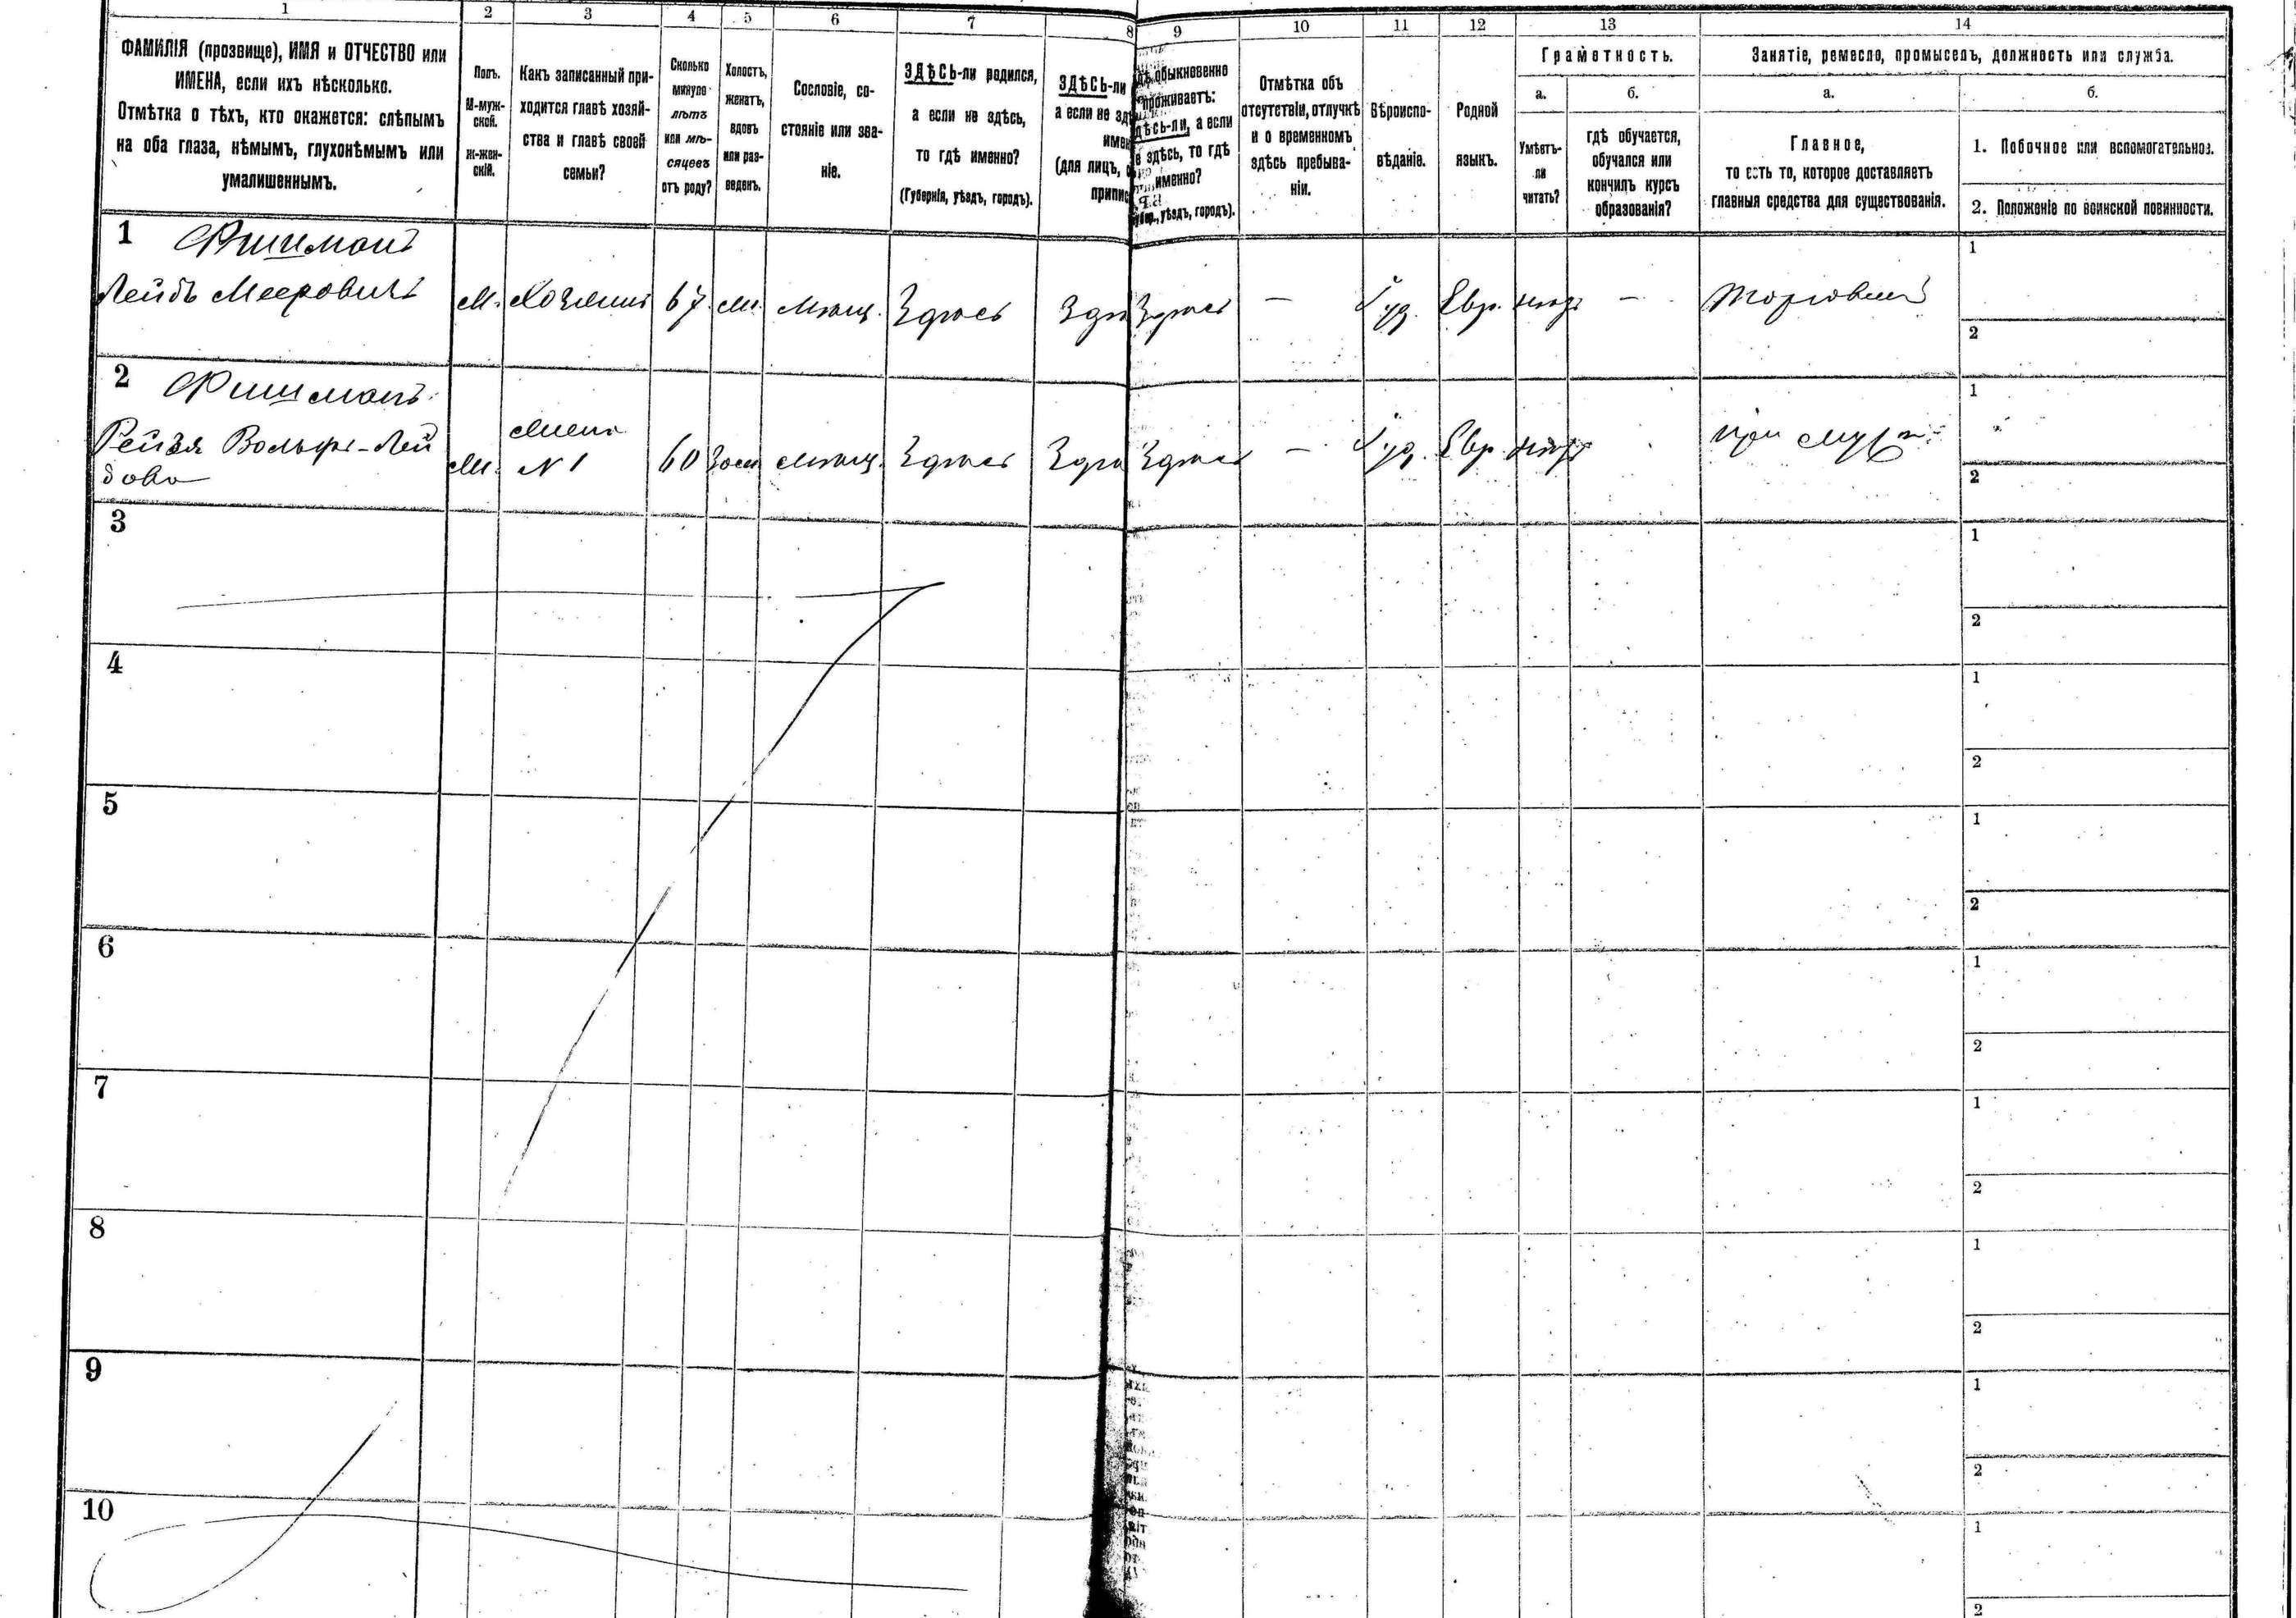 1 2 3 4 5 6 7 8 9 10 11 12 13 14
ФАМИЛІЯ (прозвище), ИМЯ и ОТЧЕСТВО или
ИМЕНА, если ихъ нѣсколько.
Отмѣтка о тѣхъ, кто окажется: слѣпымъ
на оба глаза, нѣмымъ, глухонѣмымъ или
умалишеннымъ.
Полъ.
М-муж-
ской.
Ж-жен-
скій.
Какъ записанный при-
ходится главѣ хозяй-
ства и главѣ своей
семьи?
Сколько
минуло
лѣтъ
или мѣ-
сяцевъ
отъ роду?
Холостъ,
женатъ,
вдовъ
или раз-
веденъ.
Сословіе, со-
стояніе или зва-
ніе.
ЗДѢСЬ-ли родился,
а если не здѣсь,
то гдѣ именно?
(Губернія, уѣздъ, городъ).
ЗДѢСЬ-ли
а если не
(для лицъ,
обыкновенно
проживаетъ:
а если
здѣсь, то гдѣ
именно?
уѣздъ, городъ).
Отмѣтка объ
отсутствіи, отлучкѣ
и о временномъ
здѣсь пребыва-
ніи.
Вѣроиспо-
вѣданіе.
Родной
языкъ.
Грамотность.
а.
Умѣетъ-
ли
читать?
б.
гдѣ обучается,
обучался или
кончилъ курсъ
образованія?
Занятіе, ремесло, промыселъ, должность или служба.
а.
Главное,
то есть то, которое доставляетъ
главныя средства для существованія.
б.
1. Побочное или вспомогательноз.
2. Положеніе по воинской повинности.
1 Фишманъ
Лейбъ Мееровичъ М. Хозяинъ 67 мѣщ. Здѣсь Здѣсь — Іуд. Евр. нѣтъ — Торговецъ
1
2
2 Фишманъ
Рейзя Вольфъ-Лей
бова
жена
№ 1 60 мѣщ. Здѣсь Здѣсь — Іуд. Евр. нѣтъ при
1
2
3
1
2
4
1
2
5
1
2
6
1
2
7
1
2
8
1
2
9
1
2
10
1
2